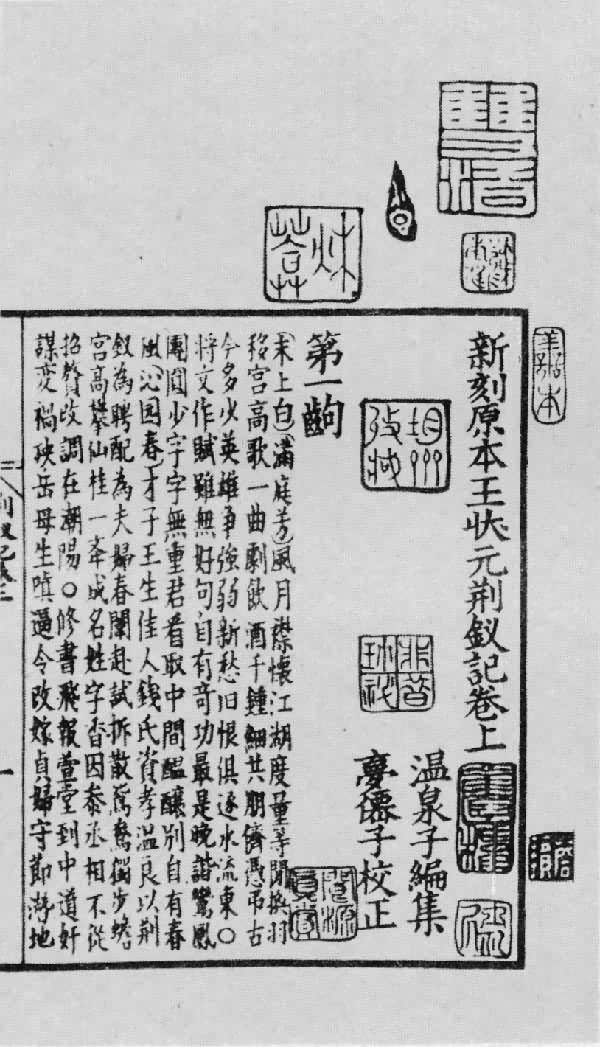 新刻原本王狀元荆釵記卷上
温泉子編集
夢僊子校正
第一齣
末上白滿庭芳風月襟懷江湖度量等閒換羽
移宮高歌一曲劇飲酒千鍾細共朋儕憑弔古
今多少英雄爭強弱新愁旧恨俱逐水流東〇
将文作賦雖無好句自有奇功最是晚諧鸞鳳
團圓少字字無重君看取中間醞釀別自有春
風沁园春才子王生佳人錢氏資孝温良以荆
釵為聘配為夫婦春闈赴試拆散鴛鴦獨步蟾
宮高攀仙桂一舉成名姓字香因参丞相不從
招贅改調在潮陽〇修書飛報萱堂到中道奸
謀变禍殃岳母生嗔逼令改嫁貞婦守節游地